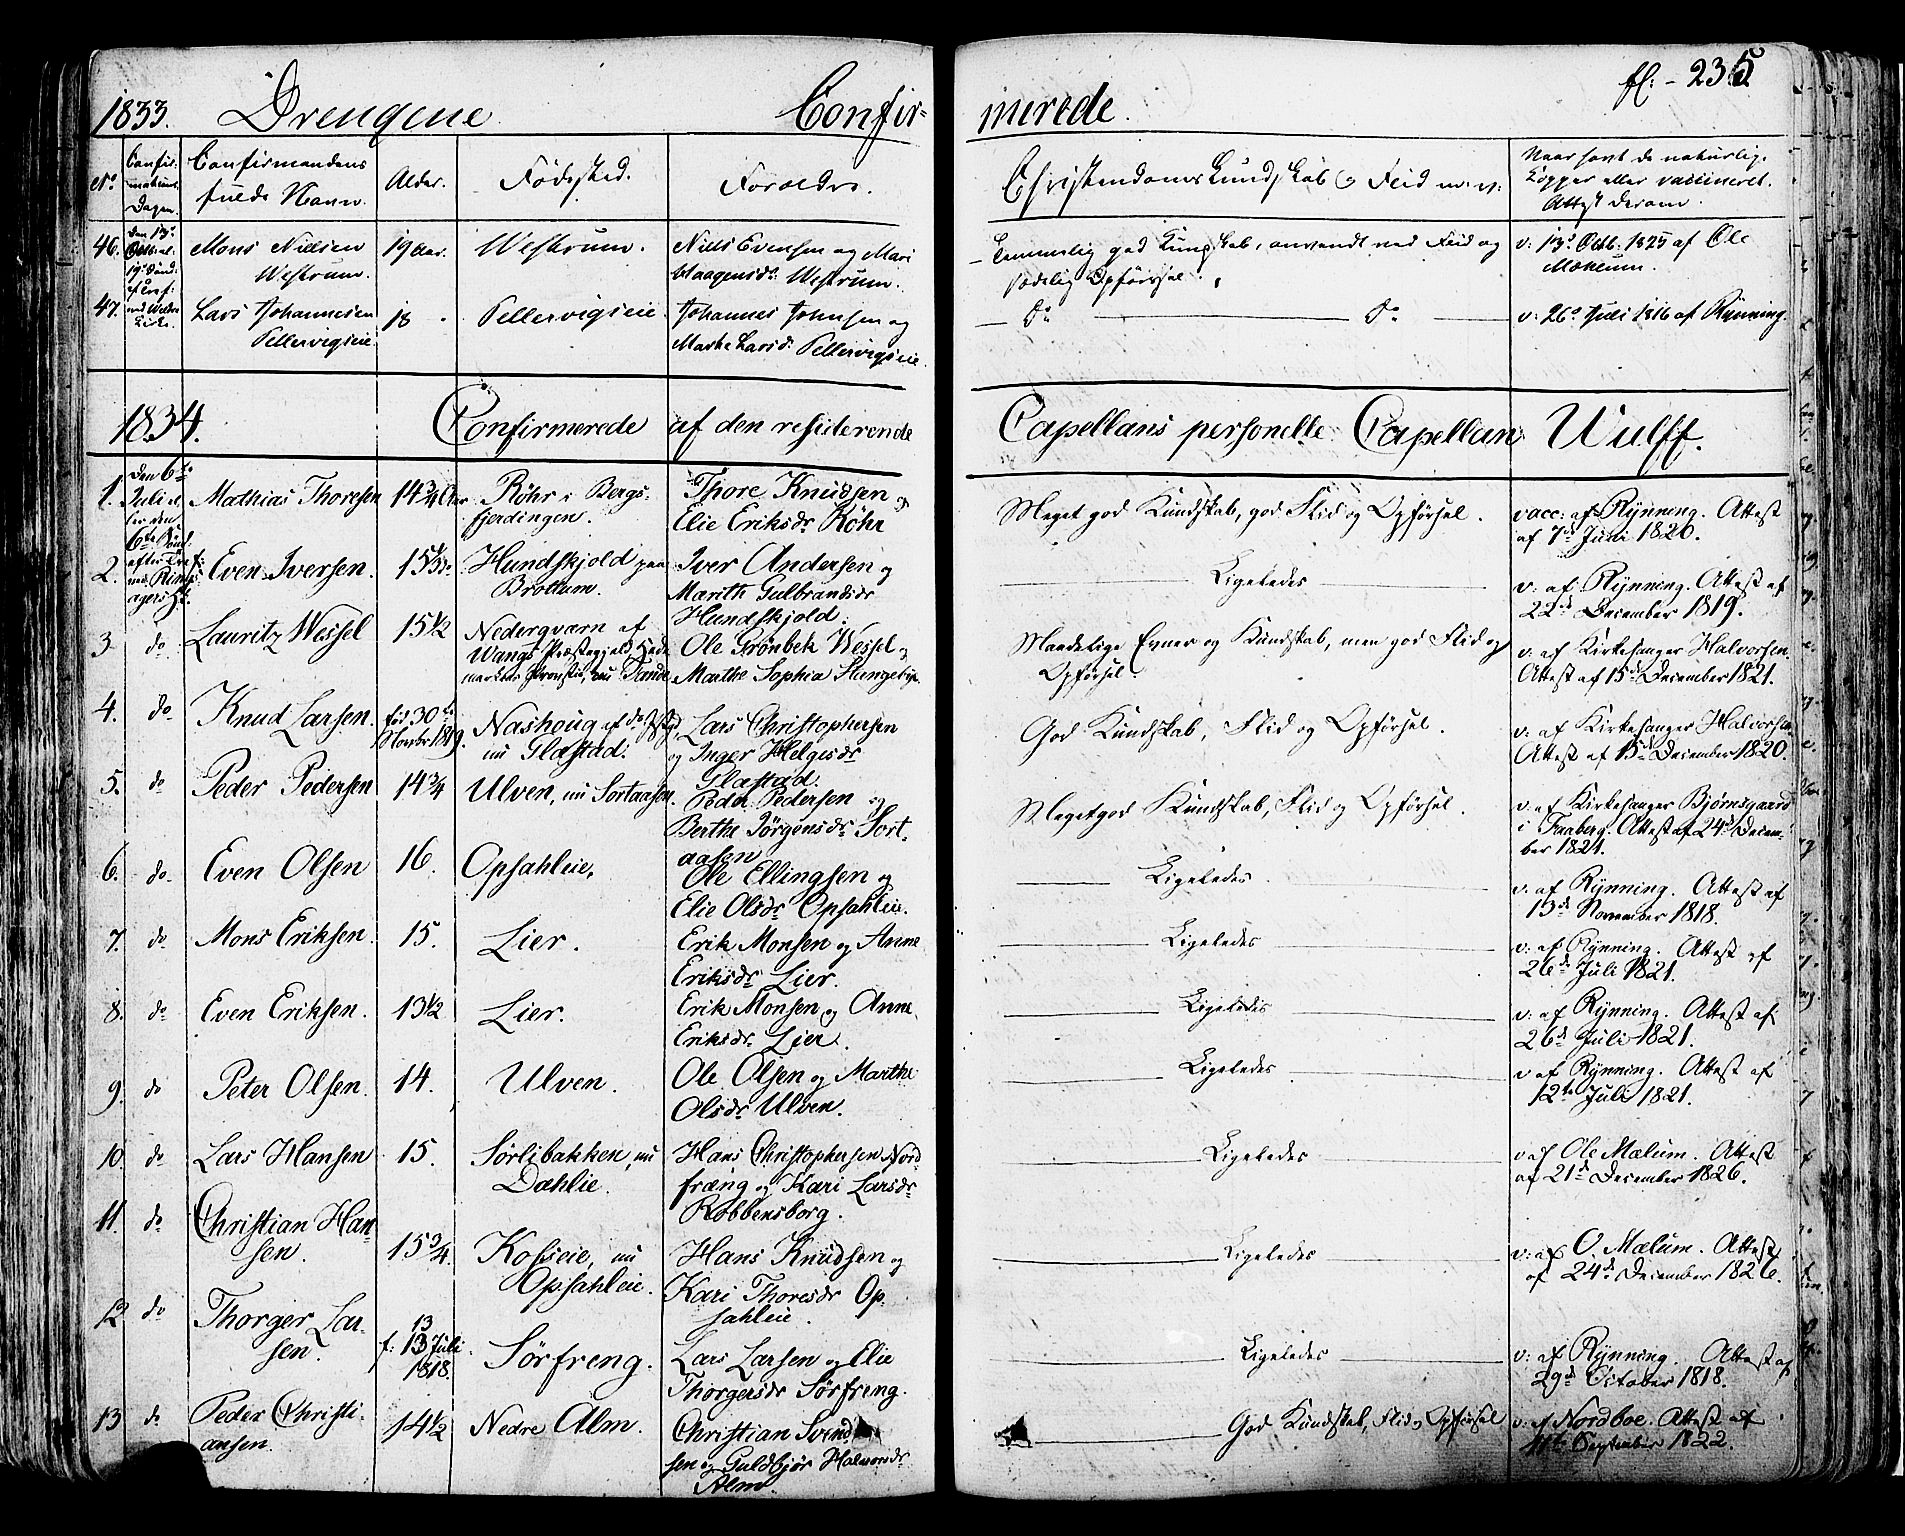 1833. Drengene Confir= merede. fl: - 235
No Confirmations Dagen. Confirmandens fulde Navn. Alder. Fødested. Forældre. Christendoms Kundskab og Flid m: v: Naar havt de naturlige Kopper eller vaccineret. Attest derom.
46. Mons Nielsen Westrum. 19 Aar. Westrum. Niels Evensen og Mari Haagensdr Westrum. Temmelig god Kundskab, anvendt med Flid og sædelig Opførsel. v: 13de Octb: 1825 af Ole Mælum.
47. Lars Johannesen Pellervigseie. 18 Pellervigseie. Johannes Johnsen og Marthe Larsdr Pellervigseie. Do Do v: 26de Juli 1816 af Rynning.
1834. Confirmerede af den residerende Capellans personelle Capellan Wulff.
1. Den 6te Juli Mathias Thoresen 14 3/4 Aar Röhr i Bergs-
fjerdingen. Thore Knudsen og
Elie Eriksdr Röhr Meget god Kundskab, god Flid og Opførsel. vacc: af Rynning. Attest
af 7de Juni 1820.
2. Even Iversen. 15 1/3 do. Hundskjold paa
Brottum. Iver Andersen og
Marith Gulbrandsdr
Hundskjold. Ligeledes v: af Rynning. Attest af
22de December 1819.
3 do Lauritz Wessel 15 1/2 Nederqværn af
Wangs Præstegjeld, Hede
markens Provstie, nu Ole Grönbek Wessel og
Marthe Sophia Maadelige Evner og Kundskab, men god Flid og
Opførsel. v: af Kirkesanger Halvorsen.
Attest af 15de December 1821.
4. do Knud Larsen. föd 30te
Novber 1819. Nashoug af do
nu Glæstad. Lars Christophersen
og Inger Helgesdr
Glæstad. God Kundskab, Flid og Opførsel. v: af Kirkesanger Halvorsen
Attest af 15de December 1820.
5. do Peder Pedersen 14 3/4 Ulven, nu Sortaasen. Peder Pedersen og
Berthe Jörgensdr Sort
aasen Meget god Kundskab, Flid og Opførsel. v: af Kirkesanger Björnsgaard
i Faaberg. Attest af 24de Decem-
ber 1821.
6. do Even Olsen 16. Opsahleie. Ole Ellingsen og
Elie Olsdr Opsahleie. Ligeledes v: af Rynning. Attest af
13de November 1818.
7. do Mons Eriksen. 15. Lier. Erik Monsen og Anne
Eriksdr Lier. Ligeledes v: af Rynning. Attest af
26de Juli 1821.
8. do Even Eriksen. 13 1/2 Lier. Erik Monsen og Anne
Eriksdr Lier. Ligeledes v: af Rynning. Attest af
26de Juli 1821.
9. do Peter Olsen. 14. Ulven. Ole Olsen og Marthe
Olsdr Ulven. Ligeledes v af Rynning. Attest af
12te Juli 1821.
10. do Lars Hansen 15. Sörlibakken, nu
Dæhlie. Hans Christophersen Nord
fræng og Kari Larsdr
Robbensborg. Ligeledes v af Ole Mælum. Attest
af 21de December 1826.
11. do Christian Han
sen. 15 3/4. Kofseie, nu
Opsahleie. Hans Knudsen og
Kari Thoresdr Op
sahleie. Ligeledes v: af O. Mælum. Attest
af 24de December 1826.
12 do Thorger Lar-
sen. f: 13 Juli
1818. Sörfreng. Lars Larsen og Elie
Thorgersdr Sörfreng. Ligeledes v: af Rynning. Attest af
29de October 1818.
13 do Peder Christi-
ansen. 14 1/2 Nedre Alm. Christian Svend
sen og Guldbjör Halvorsdr
Alm. God Kundskab, Flid og Opførsel v: af Nordboe. Attest af
11te September 1822.